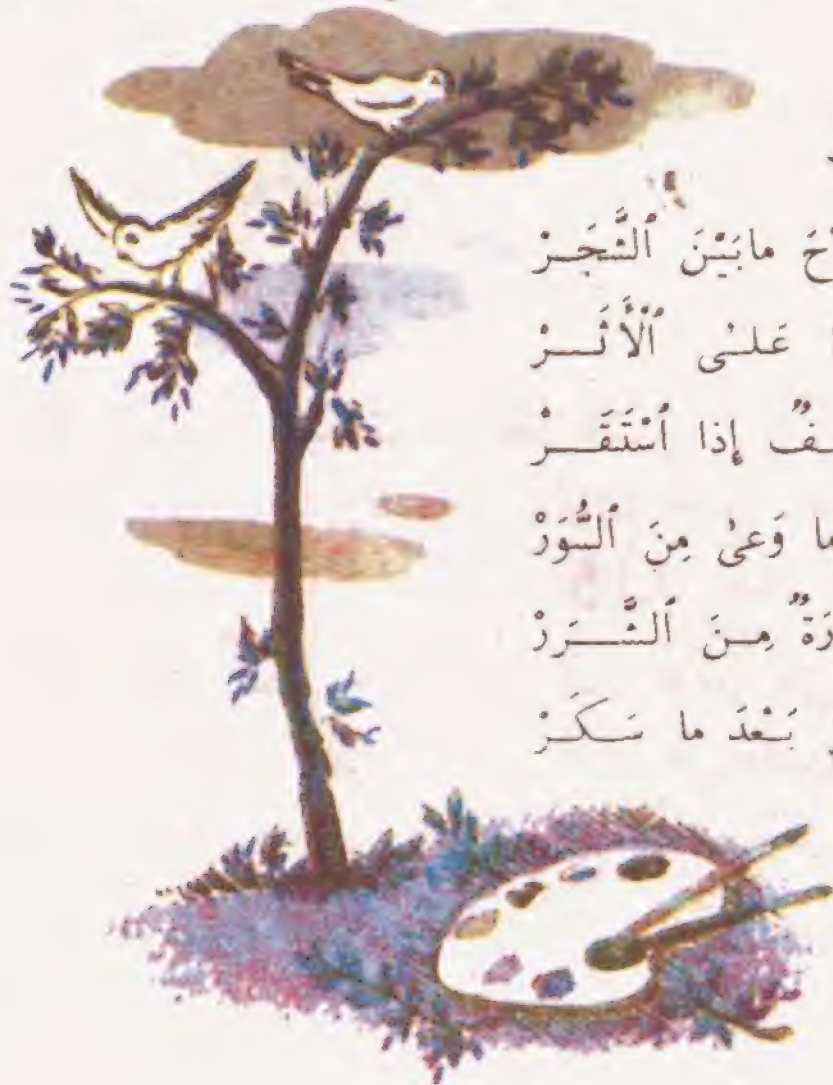 مابَيْنَ ٱلشَّجَــرْ
عَلىٰ ٱلْأَثَــرْ
إِذا ٱسْتَقَــرْ
وَعىٰ مِنَ ٱلسُّوَرْ
مِـنَ ٱلشَّــرَرْ
بَـعْدَ ما سَـكَـرْ